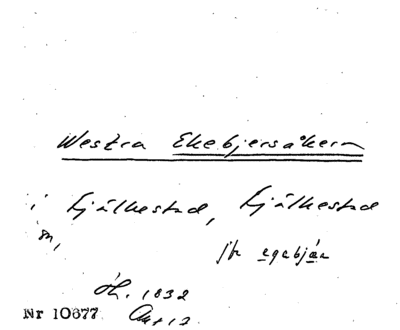 Westra Ekebjersåkern
i Fjälkestad, Fjälkestad
sn,
jfr egebjär
Öh. 1832
Nr 10677